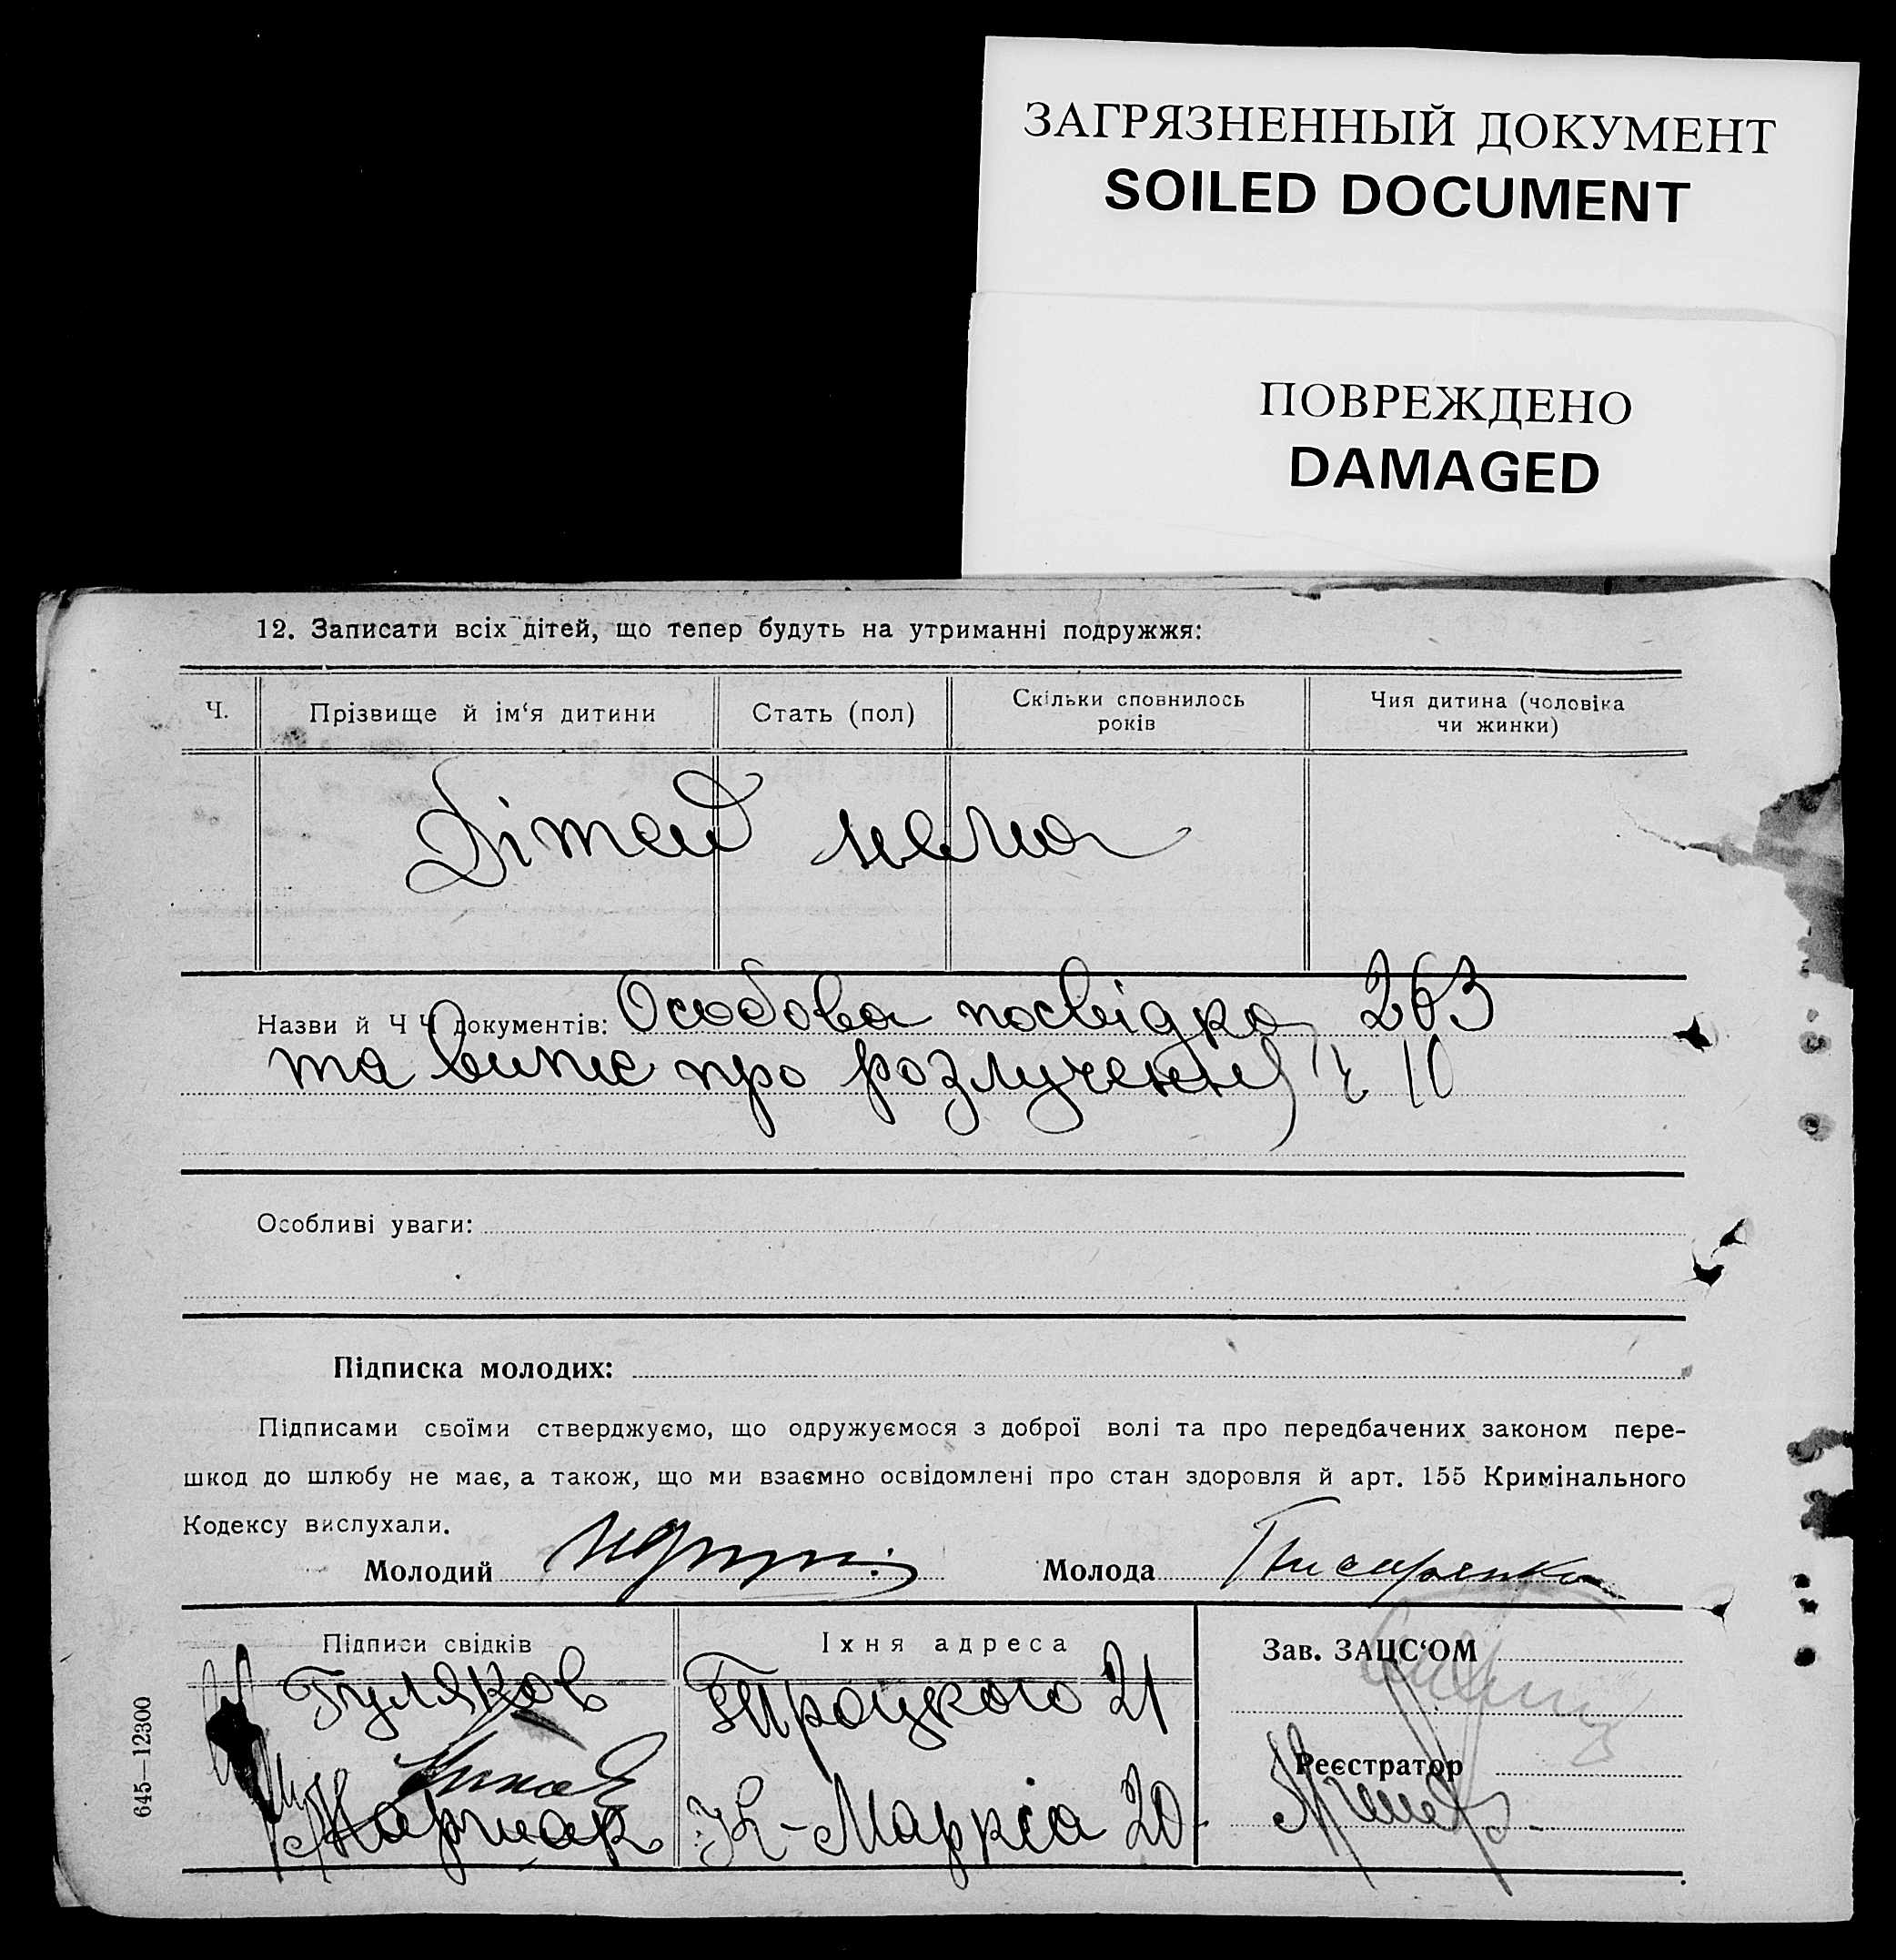 ЗАГРЯЗНЕННЫЙ ДОКУМЕНТ
SOILED DOCUMENT
ПОВРЕЖДЕНО
DAMAGED
12. Записати всіх дітей, що тепер будуть на утриманні подружжя:
Ч.
Прізвище й ім‘я дитини
Стать (пол)
Скільки сповнилось
років
Чия дитина (чоловіка
чи жинки)
Дітей нема
Назви й Ч Ч документів: Особова посвідка 263
та випис про розлучення ч 10
Особливі уваги:
Підписка молодих:
Підписами своїми стверджуємо, що одружуємося з доброї волі та про передбачених законом пере-
шкод до шлюбу не має, а також, що ми взаємно освідомлені про стан здоровля й арт. 155 Кримінального
Кодексу вислухали.
Молодий
Молода Писаренко
Підписи свідків
Їхня адреса
Зав. ЗАЦС‘ОМ
Гуляков
Троцкого 21
Реєстратор
К-Маркса 20
645—12300